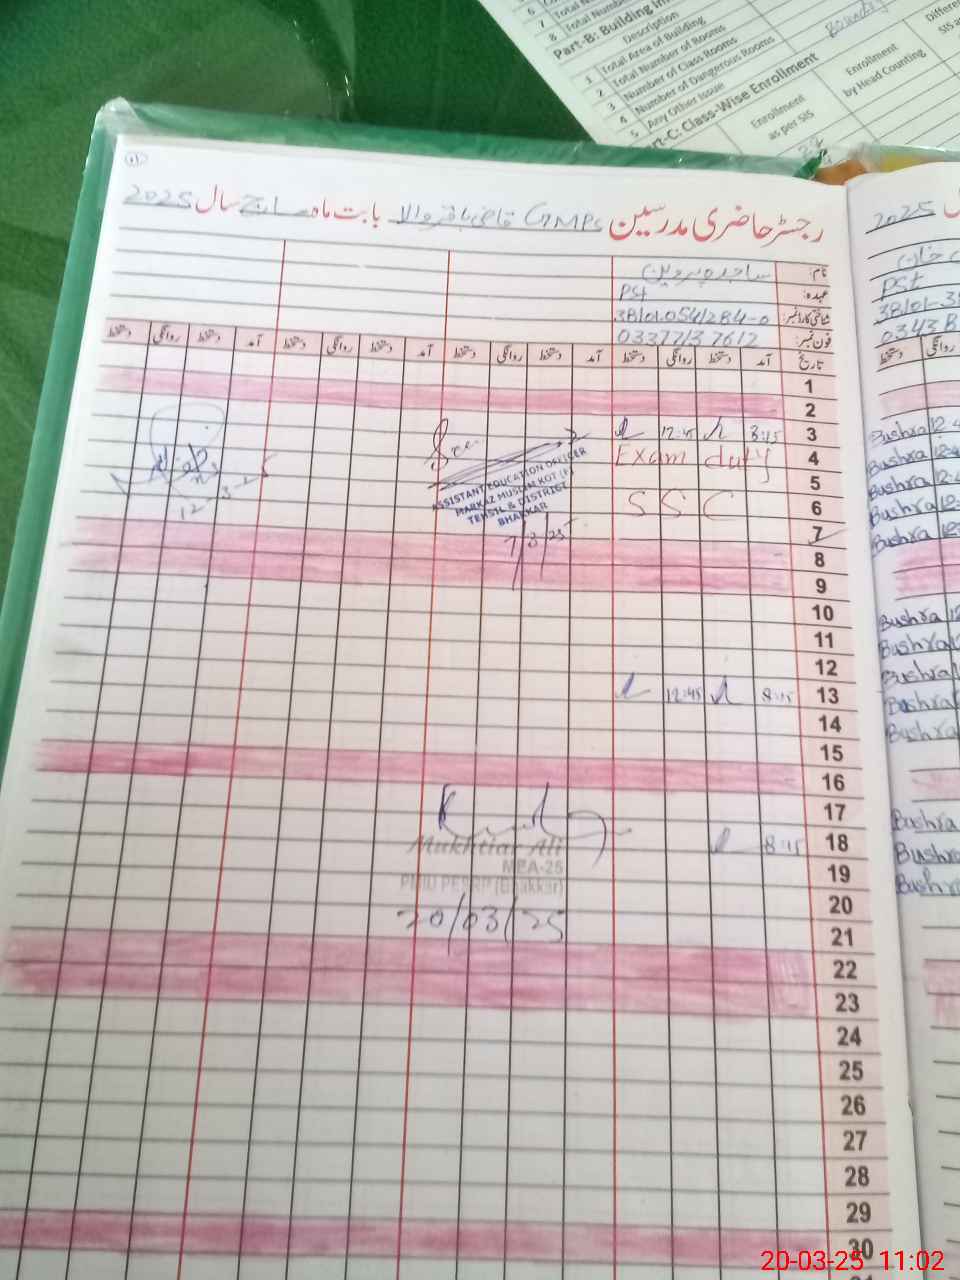 8 Total Number
Part-B: Building In
Description
1 Total Area of Building
2 Total Number of Rooms
3 Number of Class Rooms
4 Number of Dangerous Rooms
5 Any Other Issue
rt-C: Class-Wise Enrollment
Enrollment as per SIS
Enrollment by Head Counting
رجسٹر حاضری مدرسین GMPS قاضی باقر والا بابت ماہ مارچ سال 2025
2025
نام: ساجدہ پروین
عہدہ: PST
شناختی کارڈ نمبر:
فون نمبر:
تاریخ آمد دستخط روانگی دستخط آمد دستخط روانگی دستخط آمد دستخط روانگی دستخط آمد دستخط روانگی دستخط
1
2
3 8:15 12:45
4 Exam duty
5
6 SSC
7
8
9
10
11
12
13 8:15 12:45
14
15
16
17
18 8:15
19
20
21
22
23
24
25
26
27
28
29
30
ASSISTANT EDUCATION OFFICER
MARKAZ MUSLIM KOT (F)
TEHSIL & DISTRICT
BHAKKAR
7/3/25
Mukhtiar Ali
MEA-25
PMIU PESRP (Bhakkar)
20/03/25
PST
Bushra
Bushra
Bushra
Bushra
Bushra
Bushra
Bushra
Bushra
Bushra
Bushra
Bushra
Bushra
Bushra
20-03-25 11:02